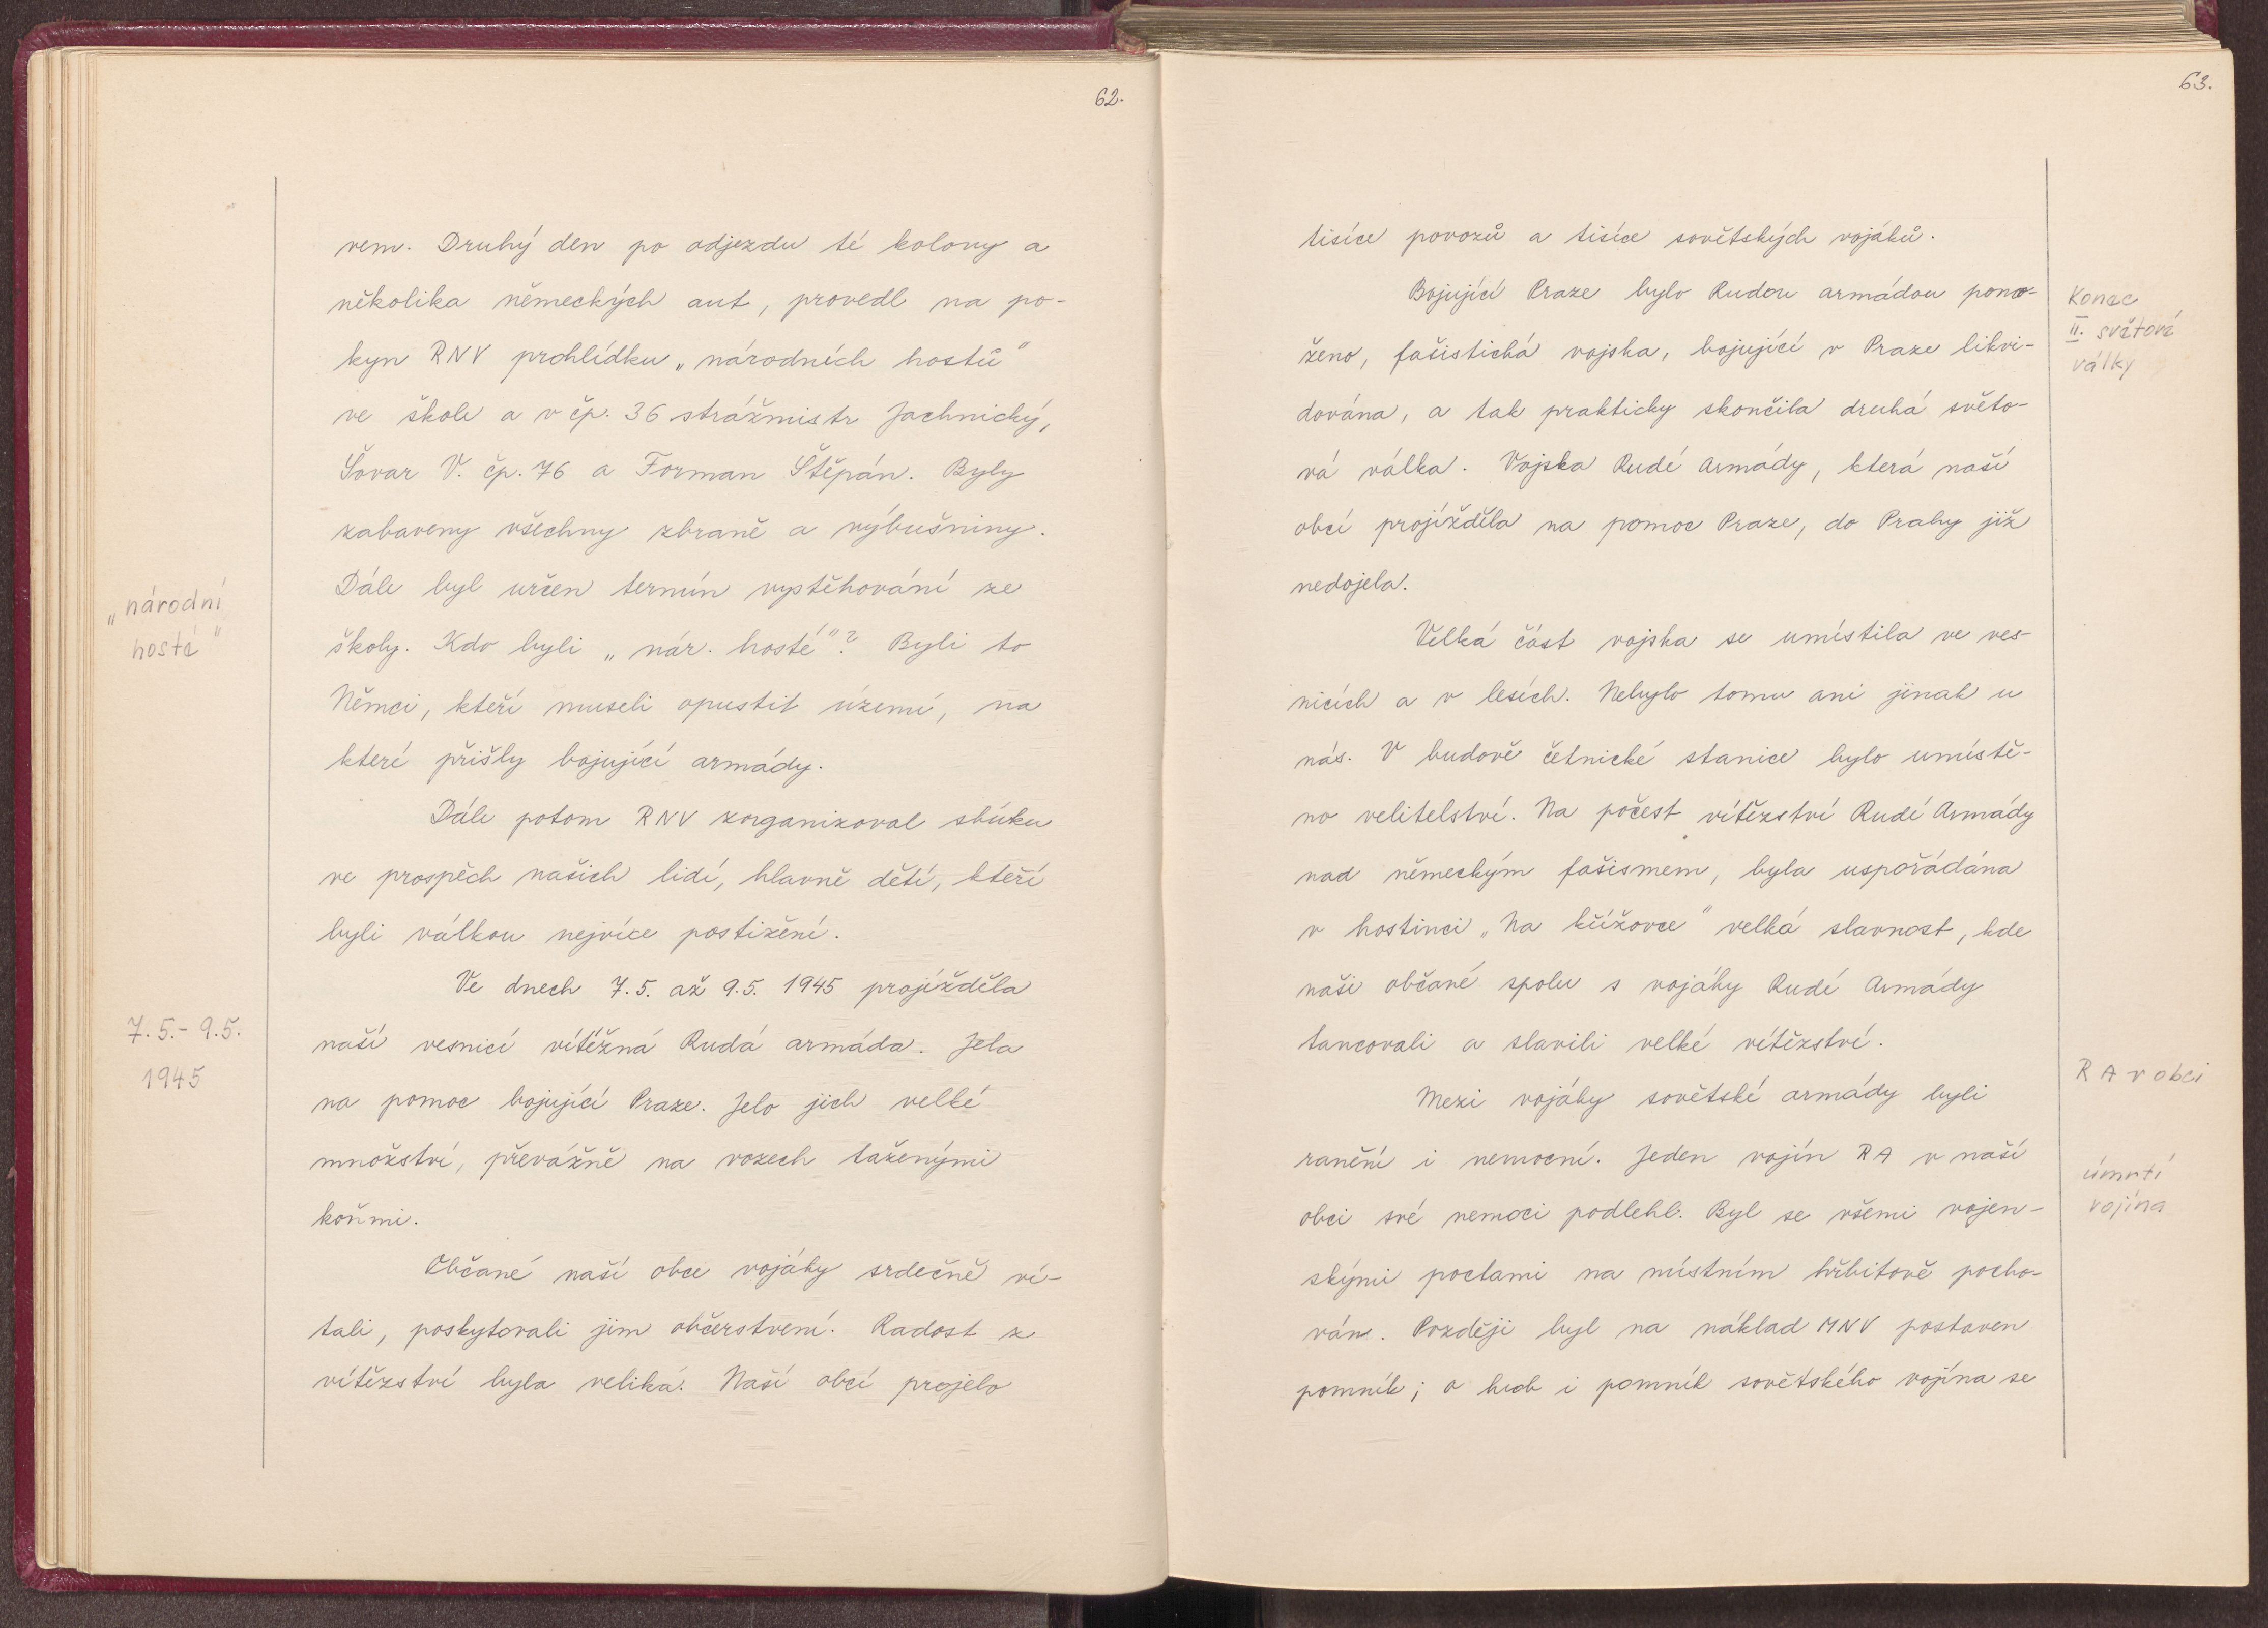 62.
vem. Druhý den po odjezdu té kolony a
několika německých aut, provedl na po-
kyn RNV prohlídku „národních hostů"
ve škole a v čp. 36 strážmistr Jachnický,
Šovar V. čp. 76 a Forman Štěpán. Byly
zabaveny všechny zbraně a výbušniny.
Dále byl určen termín vystěhování ze
„národní
hosté"
školy. Kdo byli „nár. hosté"? Byli to
Němci, kteří museli opustit území, na
které přišly bojující armády.
Dále potom RNV zorganizoval sbírku
ve prospěch našich lidí, hlavně dětí, kteří
byli válkou nejvíce postižení.
Ve dnech 7.5. až 9.5. 1945 projížděla
7.5.- 9.5.
1945
naší vesnicí vítězná Rudá armáda. Jela
na pomoc bojující Praze. Jelo jich velké
množství, převážně na vozech taženými
koňmi.
Občané naší obce vojáky srdečně ví-
tali, poskytovali jim občerstvení. Radost z
vítězství byla veliká. Naší obcí projelo
63.
tisíce povozů a tisíce sovětských vojáků.
Bojující Praze bylo Rudou armádou pomo-
Konec
II. světové
války
ženo, fašistická vojska, bojující v Praze likvi-
dována, a tak prakticky skončila druhá světo-
vá válka. Vojska Rudé Armády, která naší
obcí projížděla na pomoc Praze, do Prahy již
nedojela.
Velká část vojska se umístila ve ves-
nicích a v lesích. Nebylo tomu ani jinak u
nás. V budově četnické stanice bylo umístě-
no velitelství. Na počest vítězství Rudé Armády
nad německým fašismem, byla uspořádána
v hostinci „Na křížovce" velká slavnost, kde
naši občané spolu s vojáky Rudé Armády
tancovali a slavili velké vítězství.
R A v obci
Mezi vojáky sovětské armády byli
ranění i nemocní. Jeden vojín RA v naší
úmrtí
vojína
obci své nemoci podlehl. Byl se všemi vojen-
skými poctami na místním hřbitově pocho-
ván. Později byl na náklad MNV postaven
pomník; o hrob i pomník sovětského vojína se